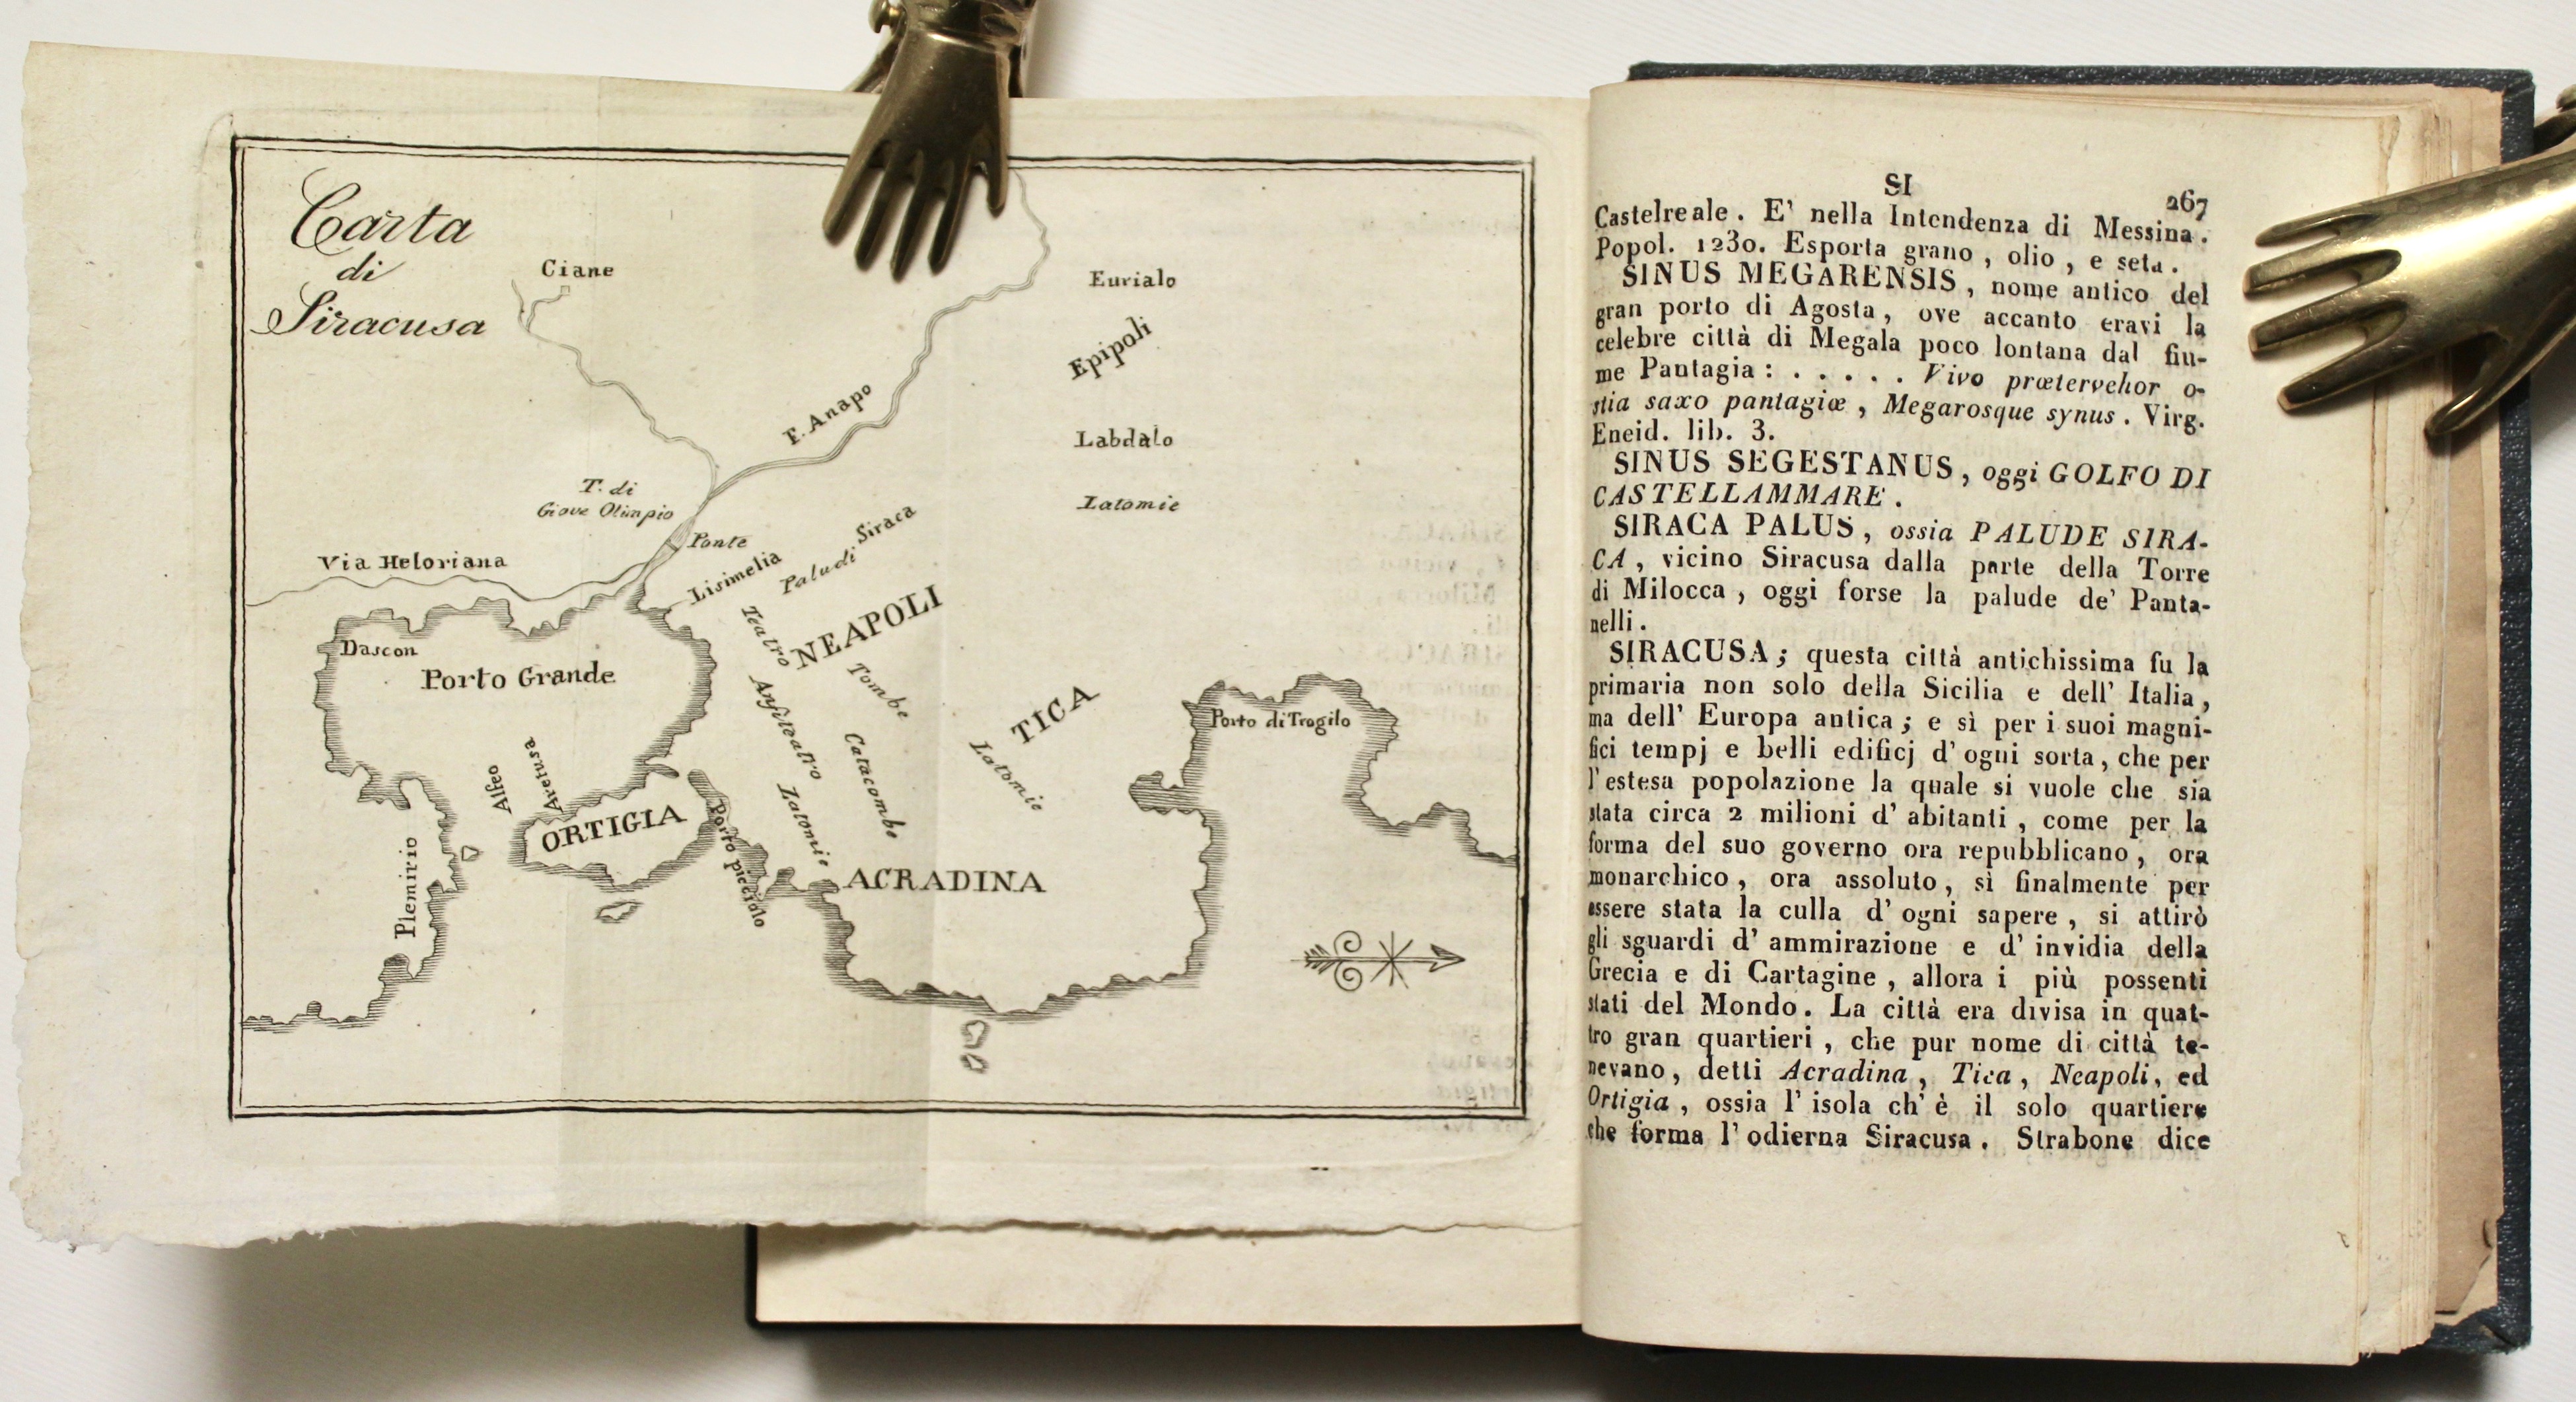 Carta
di
Siracusa
Ciane
Eurialo
Epipoli
F. Anapo
Labdalo
T. di
Giove Olimpio
Latomie
Ponte
Siraca
Paludi
Lisimelia
Via Heloriana
NEAPOLI
Teatro
Dascon
Porto Grande
Tombe
TICA
Anfiteatro
Porto di Trogilo
Latomie
Catacombe
Alfeo
Aretusa
Latomie
ORTIGIA
Porto picciolo
Plemirio
ACRADINA
SI
267
Castelreale. E' nella Intendenza di Messina.
Popol. 1230. Esporta grano, olio, e seta.
SINUS MEGARENSIS, nome antico del
gran porto di Agosta, ove accanto eravi la
celebre città di Megala poco lontana dal fiu-
me Pantagia: . . . . . Vivo prætervehor o-
stia saxo pantagiæ, Megarosque synus. Virg.
Eneid. lib. 3.
SINUS SEGESTANUS, oggi GOLFO DI
CASTELLAMMARE.
SIRACA PALUS, ossia PALUDE SIRA-
CA, vicino Siracusa dalla parte della Torre
di Milocca, oggi forse la palude de' Panta-
nelli.
SIRACUSA; questa città antichissima fu la
primaria non solo della Sicilia e dell' Italia,
ma dell' Europa antica; e sì per i suoi magni-
fici tempj e belli edificj d' ogni sorta, che per
l'estesa popolazione la quale si vuole che sia
stata circa 2 milioni d' abitanti, come per la
forma del suo governo ora repubblicano, ora
monarchico, ora assoluto, sì finalmente per
essere stata la culla d' ogni sapere, si attirò
gli sguardi d' ammirazione e d' invidia della
Grecia e di Cartagine, allora i più possenti
stati del Mondo. La città era divisa in quat-
tro gran quartieri, che pur nome di città te-
nevano, detti Acradina, Tica, Neapoli, ed
Ortigia, ossia l' isola ch' è il solo quartiere
che forma l' odierna Siracusa. Strabone dice